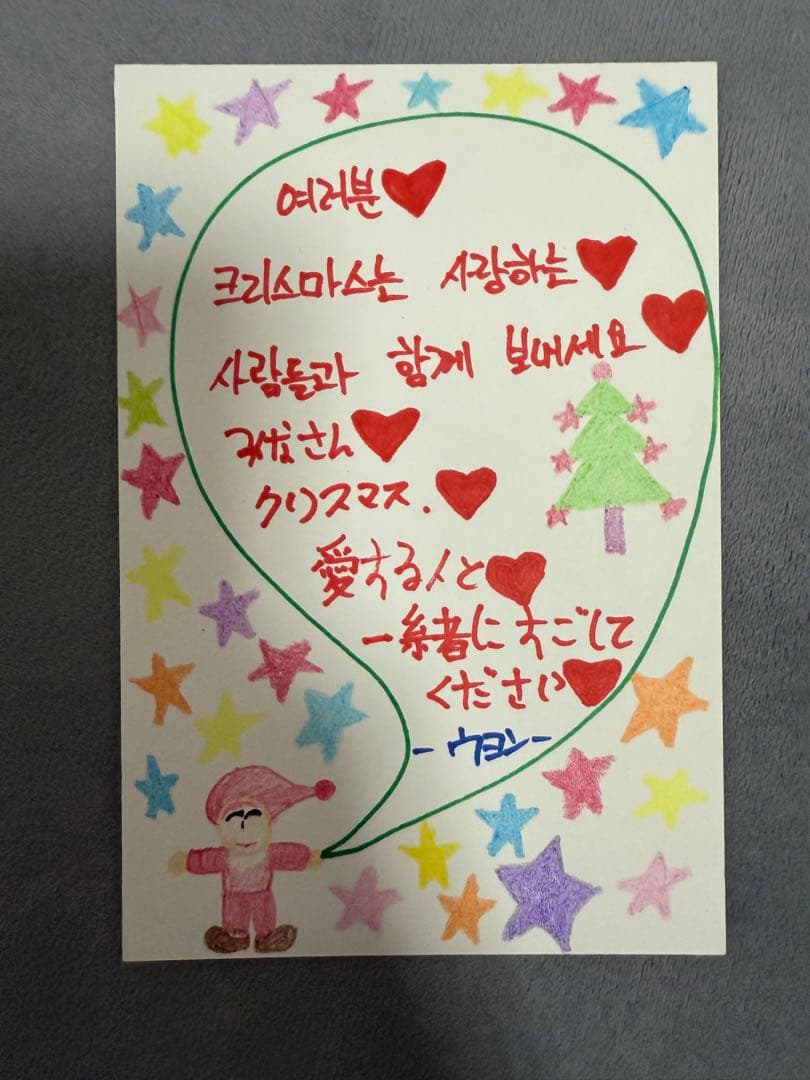 여러분❤
크리스마스는 사랑하는❤
사람들과 함께 보내세요❤
さん❤
クリスマス.❤
愛する人と❤
一緒にすごして
ください❤
-ウヨン-